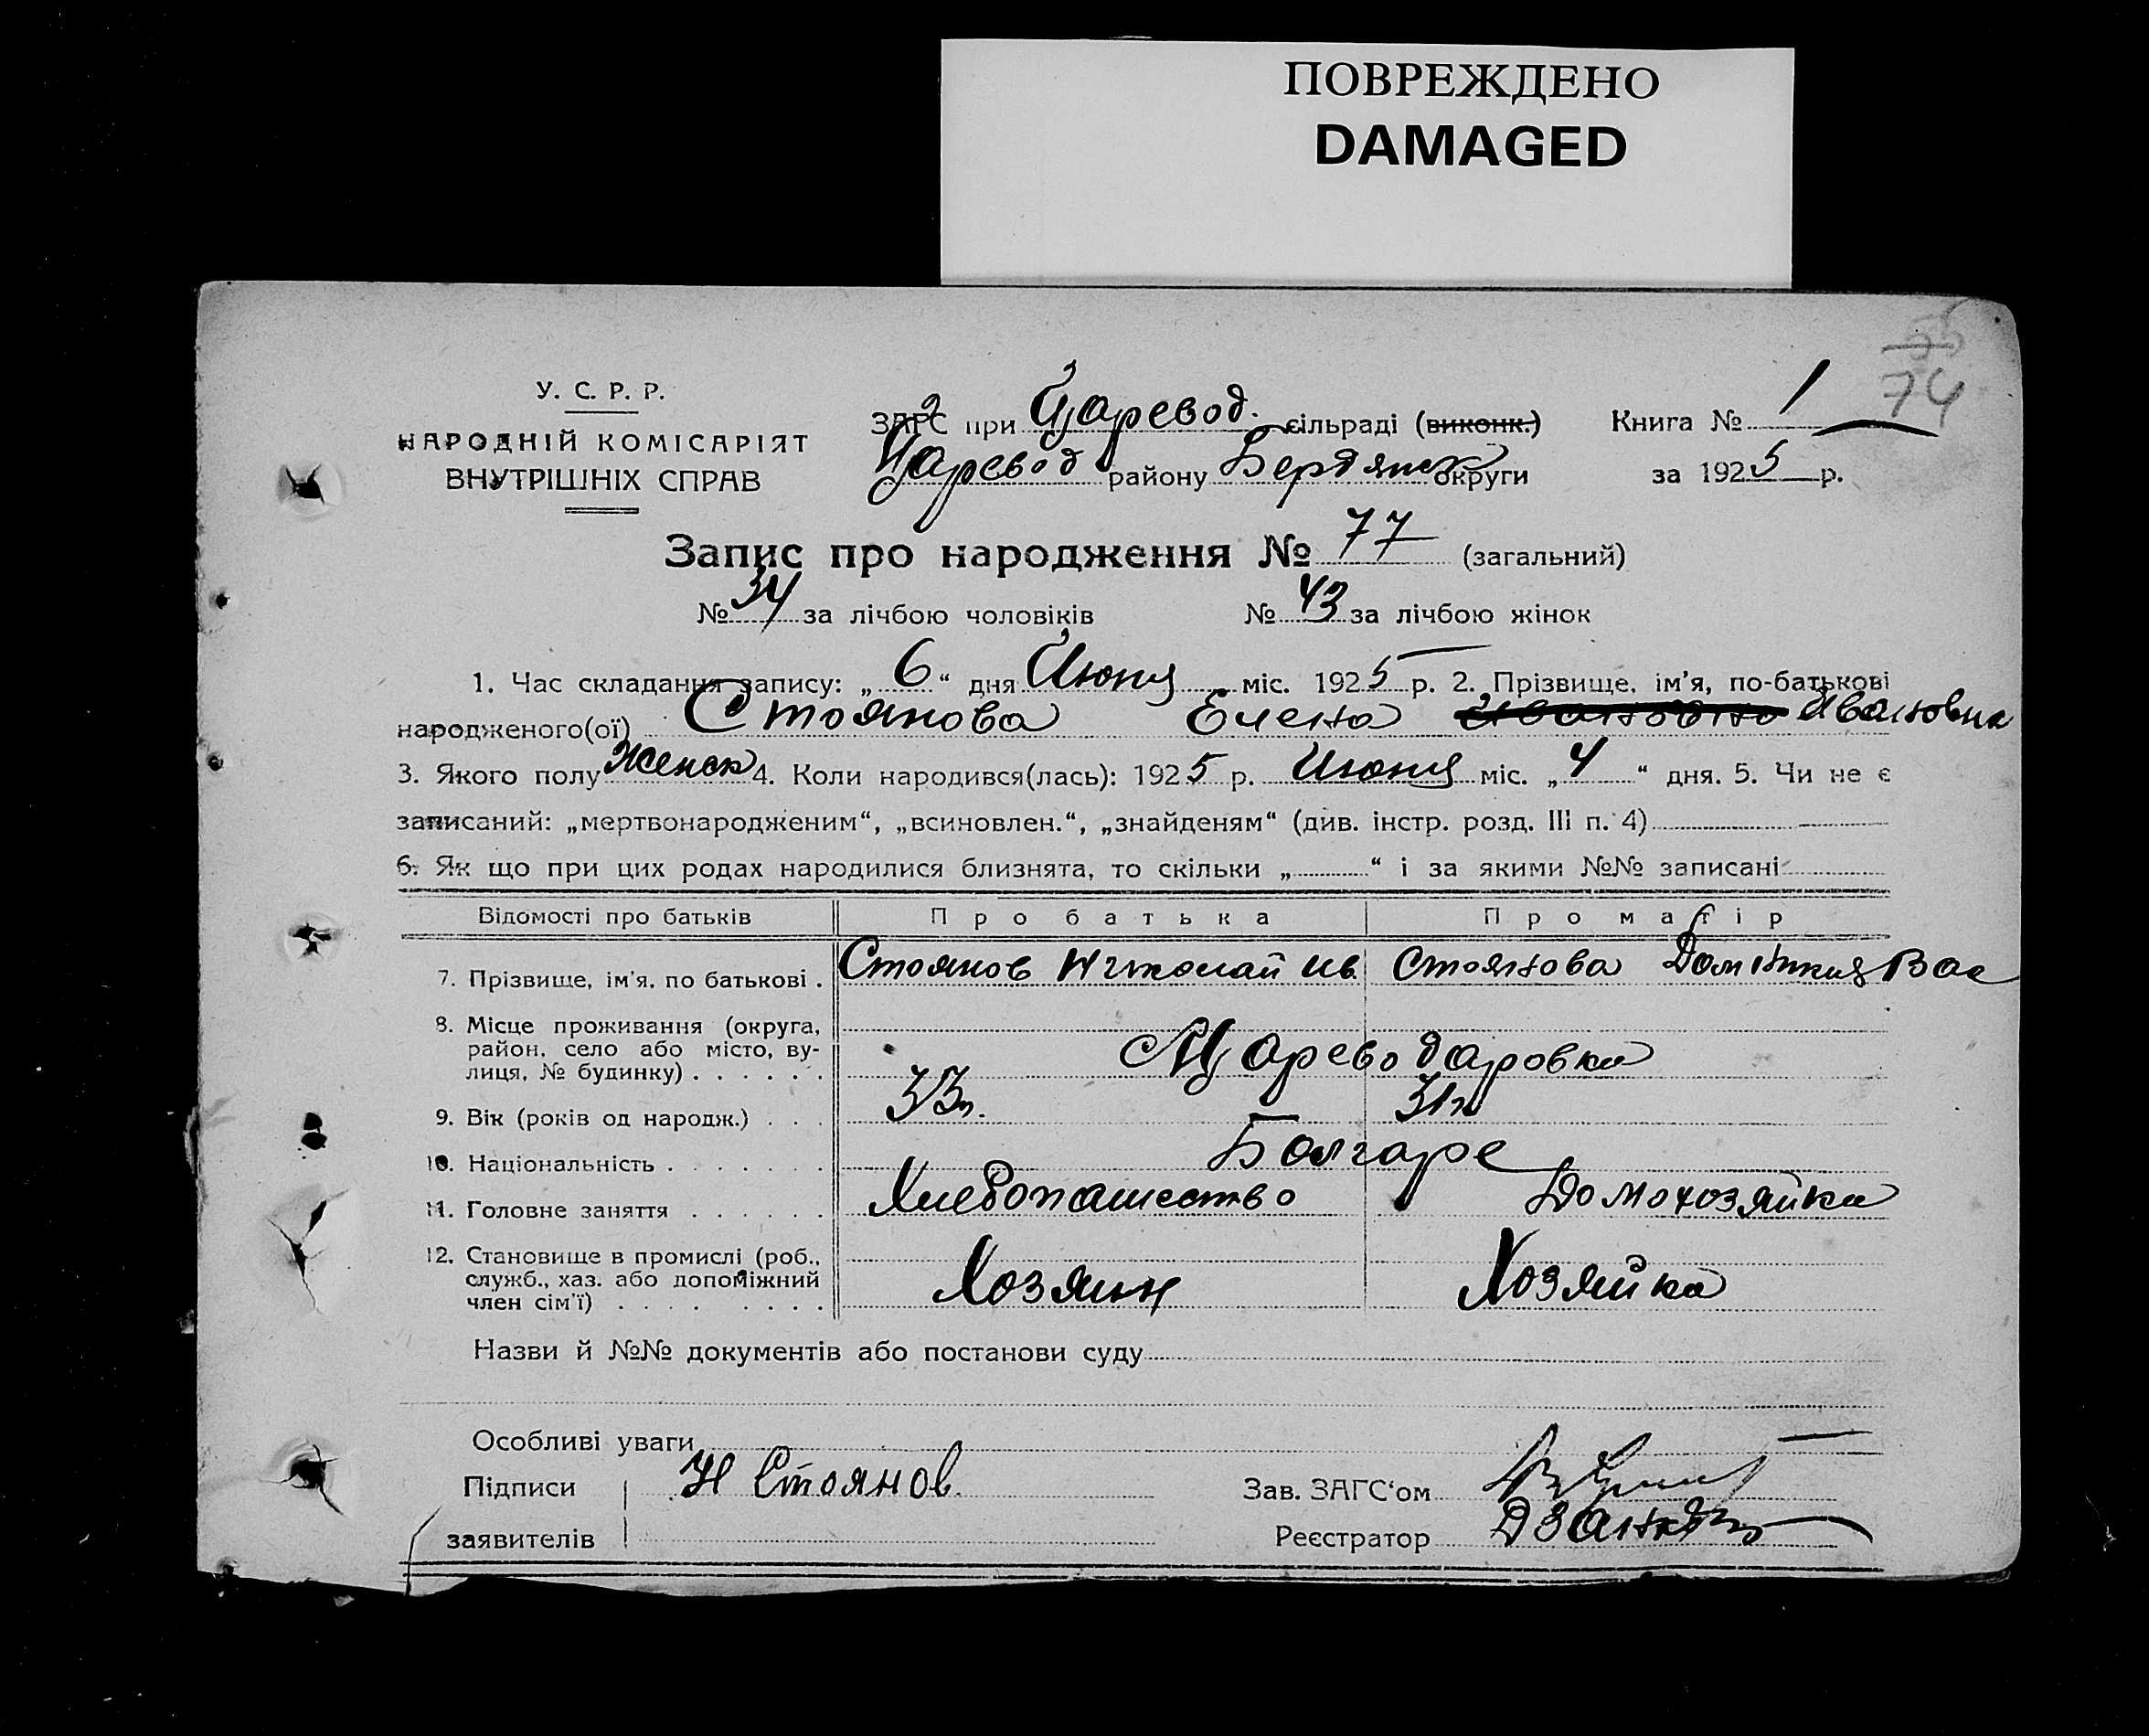 ПОВРЕЖДЕНО
DAMAGED
74
У. С. Р. Р.
НАРОДНІЙ КОМІСАРІЯТ
ВНУТРІШНІХ СПРАВ
ЗАГС при Царевод. сільраді (виконк.)
Царевод району Бердянск округи
Книга № 1
за 1925 р.
Запис про народження № 77 (загальний)
№ 34 за лічбою чоловіків № 43 за лічбою жінок
1. Час складання запису: „ 6 “ дня Июня міс. 1925 р. 2. Прізвище, ім’я, по-батькові
народженого(ої) Стоянова Елена Ивановна
3. Якого полу Женск 4. Коли народився(лась): 1925 р. Июня міс. „ 4 “ дня. 5. Чи не є
записаний: „мертвонародженим“, „всиновлен.“, „знайденям“ (див. інстр. розд. III п. 4)
6. Як що при цих родах народилися близнята, то скільки „ “ і за якими №№ записані
Відомості про батьків Про батька Про матір
7. Прізвище, ім’я, по батькові . Стоянов Николай Ив. Стоянова Домникия Вас
8. Місце проживання (округа,
район, село або місто, ву-
лиця, № будинку) . . . . . . Цареводаровка
9. Вік (років од народж.) . . . 33 г. 31 г
10. Національність . . . . . . . Болгаре
11. Головне заняття . . . . . . Хлебопашество Домохозяйка
12. Становище в промислі (роб.,
служб., хаз. або допоміжний
член сім’ї) . . . . . . . . . Хозяин Хозяйка
Назви й №№ документів або постанови суду
Особливі уваги
Підписи Н Стоянов. Зав. ЗАГС‘ом
заявителів Реєстратор